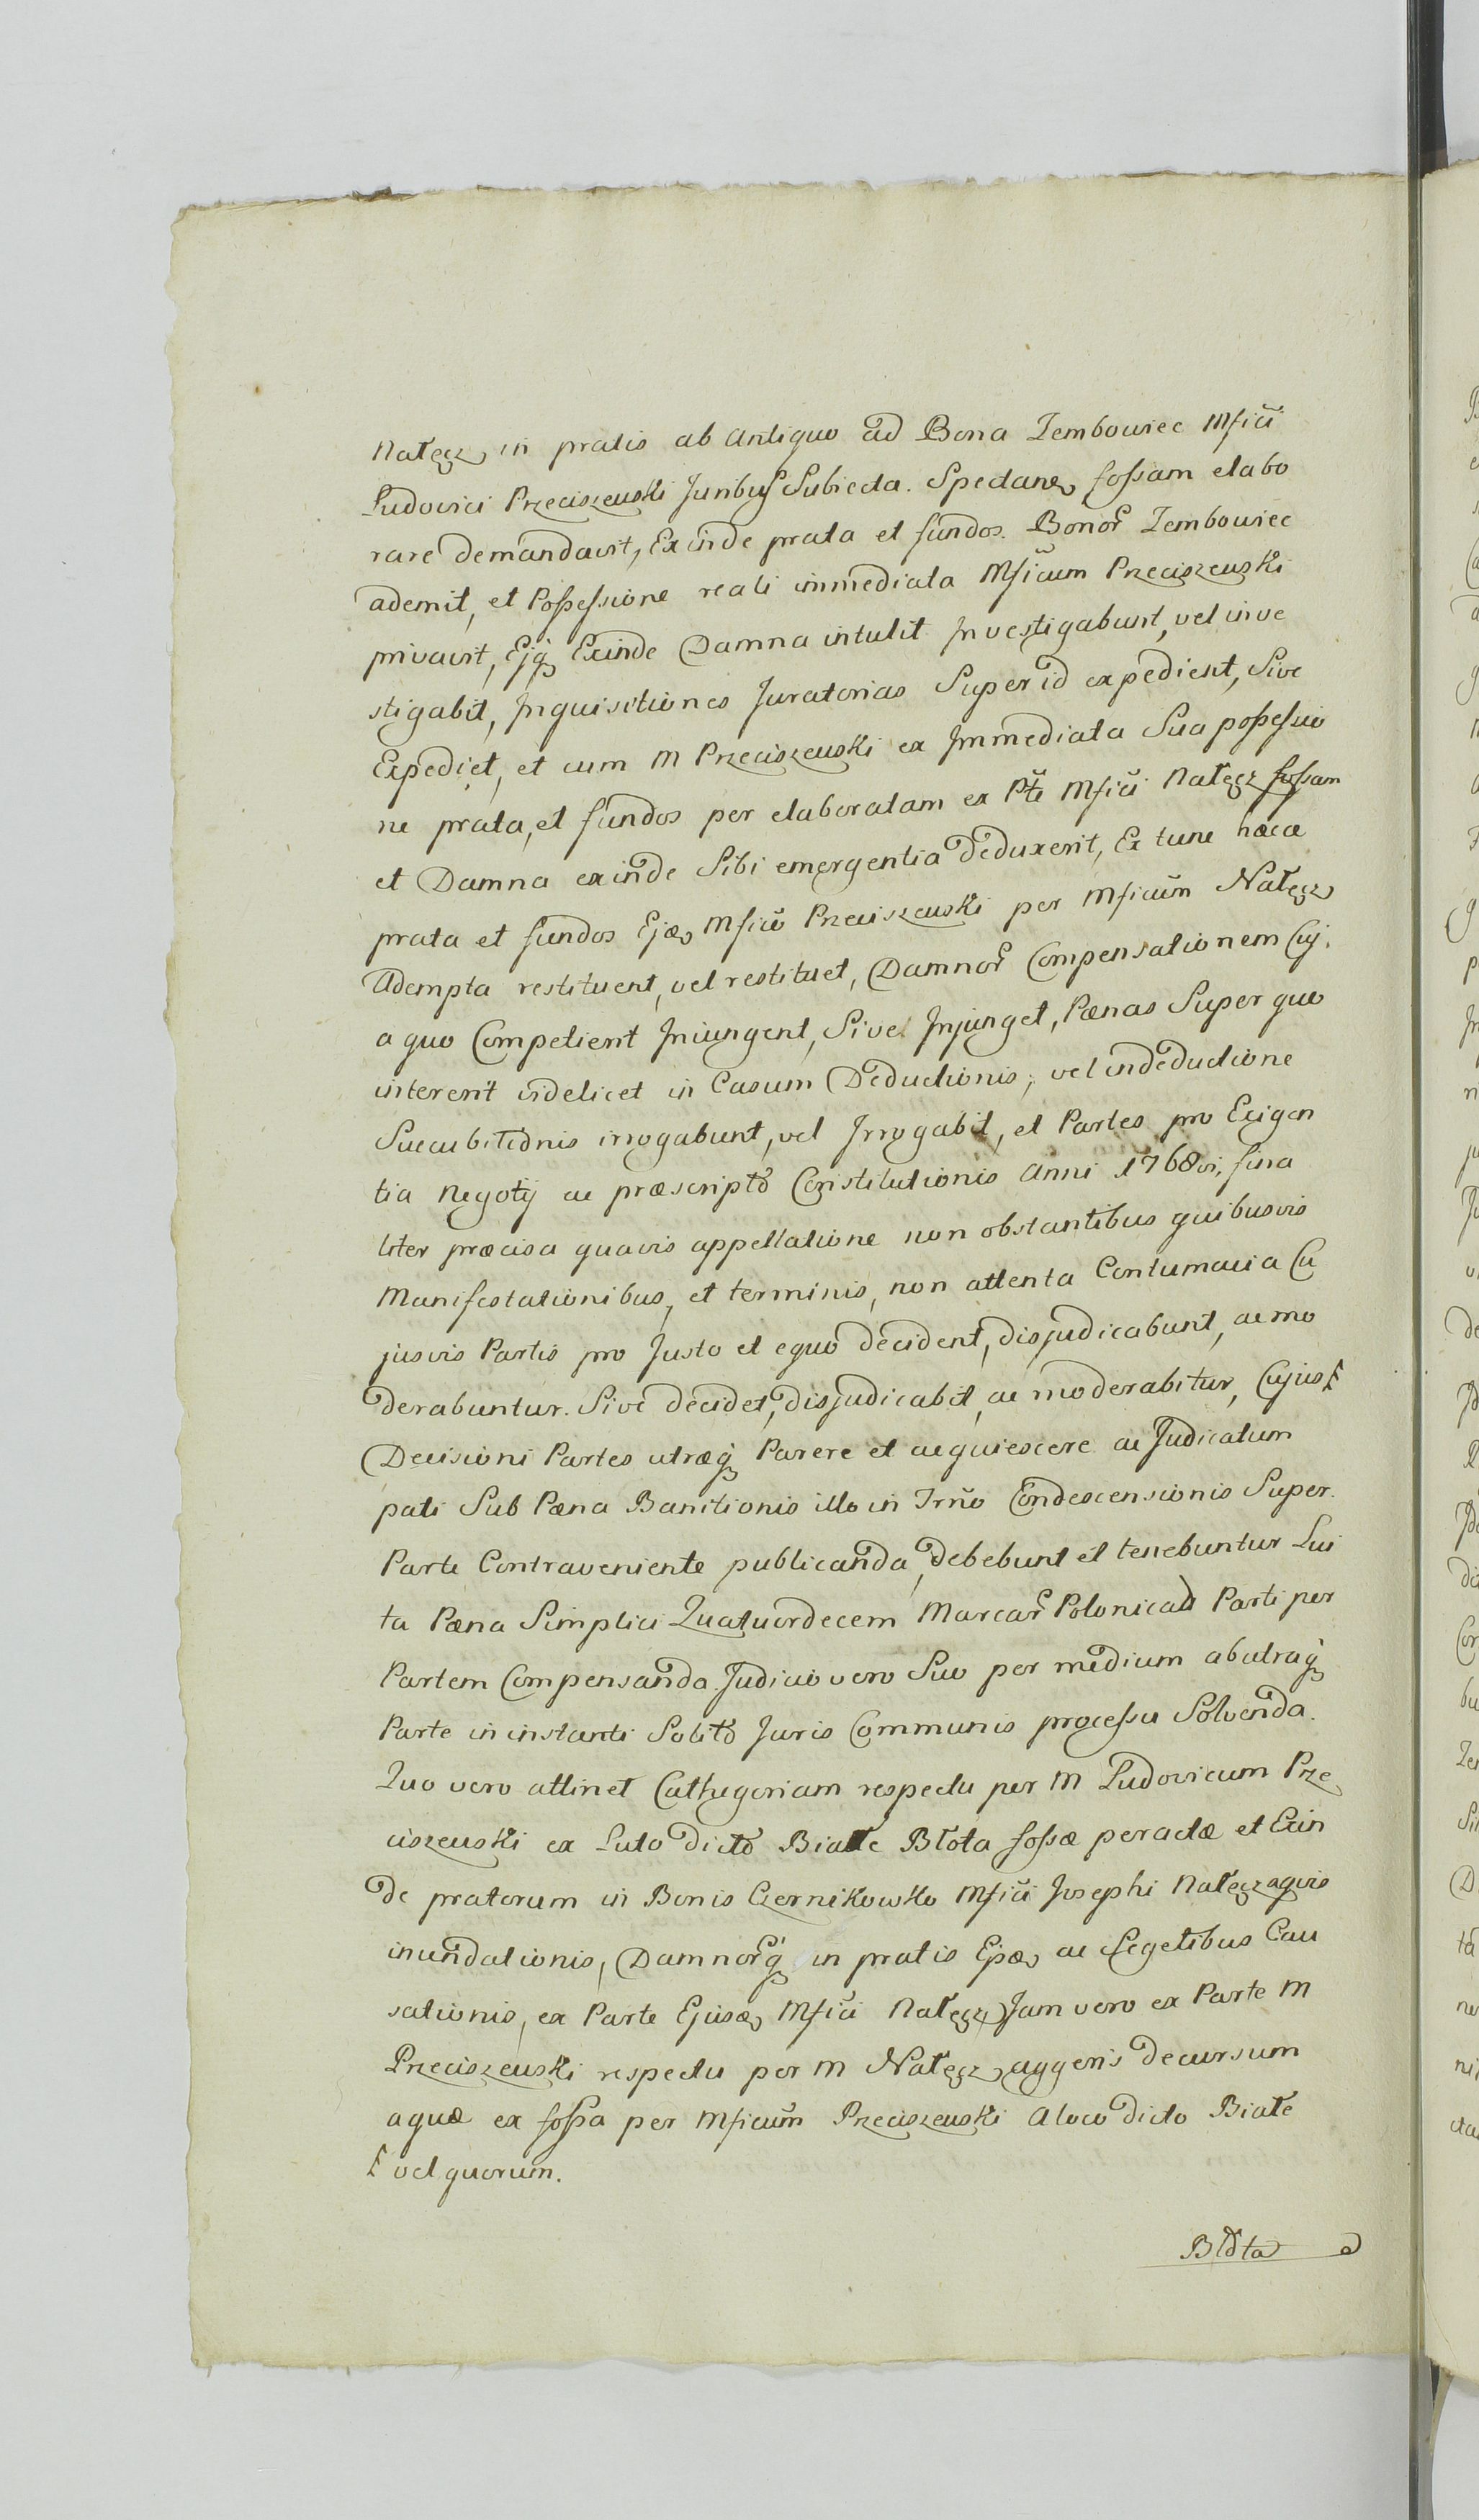 Nałęcz in pratis ab Antiquo ad Bona Zembowiec Mfici
Ludovici Przeciszewski Juribus Subiecta. Spectane, fossam elabo
rare demandavit, Exinde prata et fundos. Bonor Zembowiec
ademit, et Possessione reali immediata Mficum Przeciszewski
privavit, Ejq Exinde Damna intulit Investigabunt, vel inve
stigabit, Inquisitiones Juratorias Super id expedient, Sive
Expediet, et cum M Przeciszewski ex Immediata Sua possessio
ne prata, et fundos per elaboratam ex Pte Mfici Nałęcz fossam
et Damna exinde Sibi emergentia deduxerit, Ex tunc hæce
prata et fundos Ejæ Mfico Przeciszewski per Mficum Nałęcz
Adempta restituent, vel restituet, Damnor Compensationem Cuj.
a quo Competierit Iniungent, Sive Injunget, Pænas Super quo
intererit videlicet in Casum Deductionis, vel indeductione
Succubitionis irrogabunt, vel Irrogabit, et Partes pro Exigen
tia Negotij ac præscripto Constitutionis Anni 1768vi, fina
liter præcisa quavis appellatione non obstantibus quibusvis
Manifestationibus, et terminis, non attenta Contumacia Cu
jusvis Partis pro Justo et equo decident, disjudicabunt, ac mo
derabuntur. Sive decidet, disjudicabit, ac moderabitur, Cujus
Decisioni Partes utræq Parere et acquiescere ac Judicatum
pati Sub Pæna Banitionis illo in Trno Condescensionis Super.
Parte Contraveniente publicanda, debebunt et tenebuntur Lui
ta Pæna Simplici Quatuordecem Marcar Polonicad Parti per
Partem Compensanda. Judicio vero Suo per medium ab utraq
Parte in instanti Solito Juris Communis processu Solvenda.
Quo vero attinet Cathegoriam respectu per M Ludovicum Prze
ciszewski ex Luto dicto Białe Błota fossæ peractæ et Exin
de pratorum in Bonis Czernikowko Mfici Josephi Nałęcz aquis
inundationis, Damnorq in pratis Ejæ ac Segetibus Cau
sationis, ex Parte Ejusæ Mfici Nałęcz, Jam vero ex Parte M
Przeciszewski respectu per M Nałęcz aggeris decursum
aquæ ex fossa per Mficum Przeciszewski a loco dicto Białe
vel quorum.
Błota